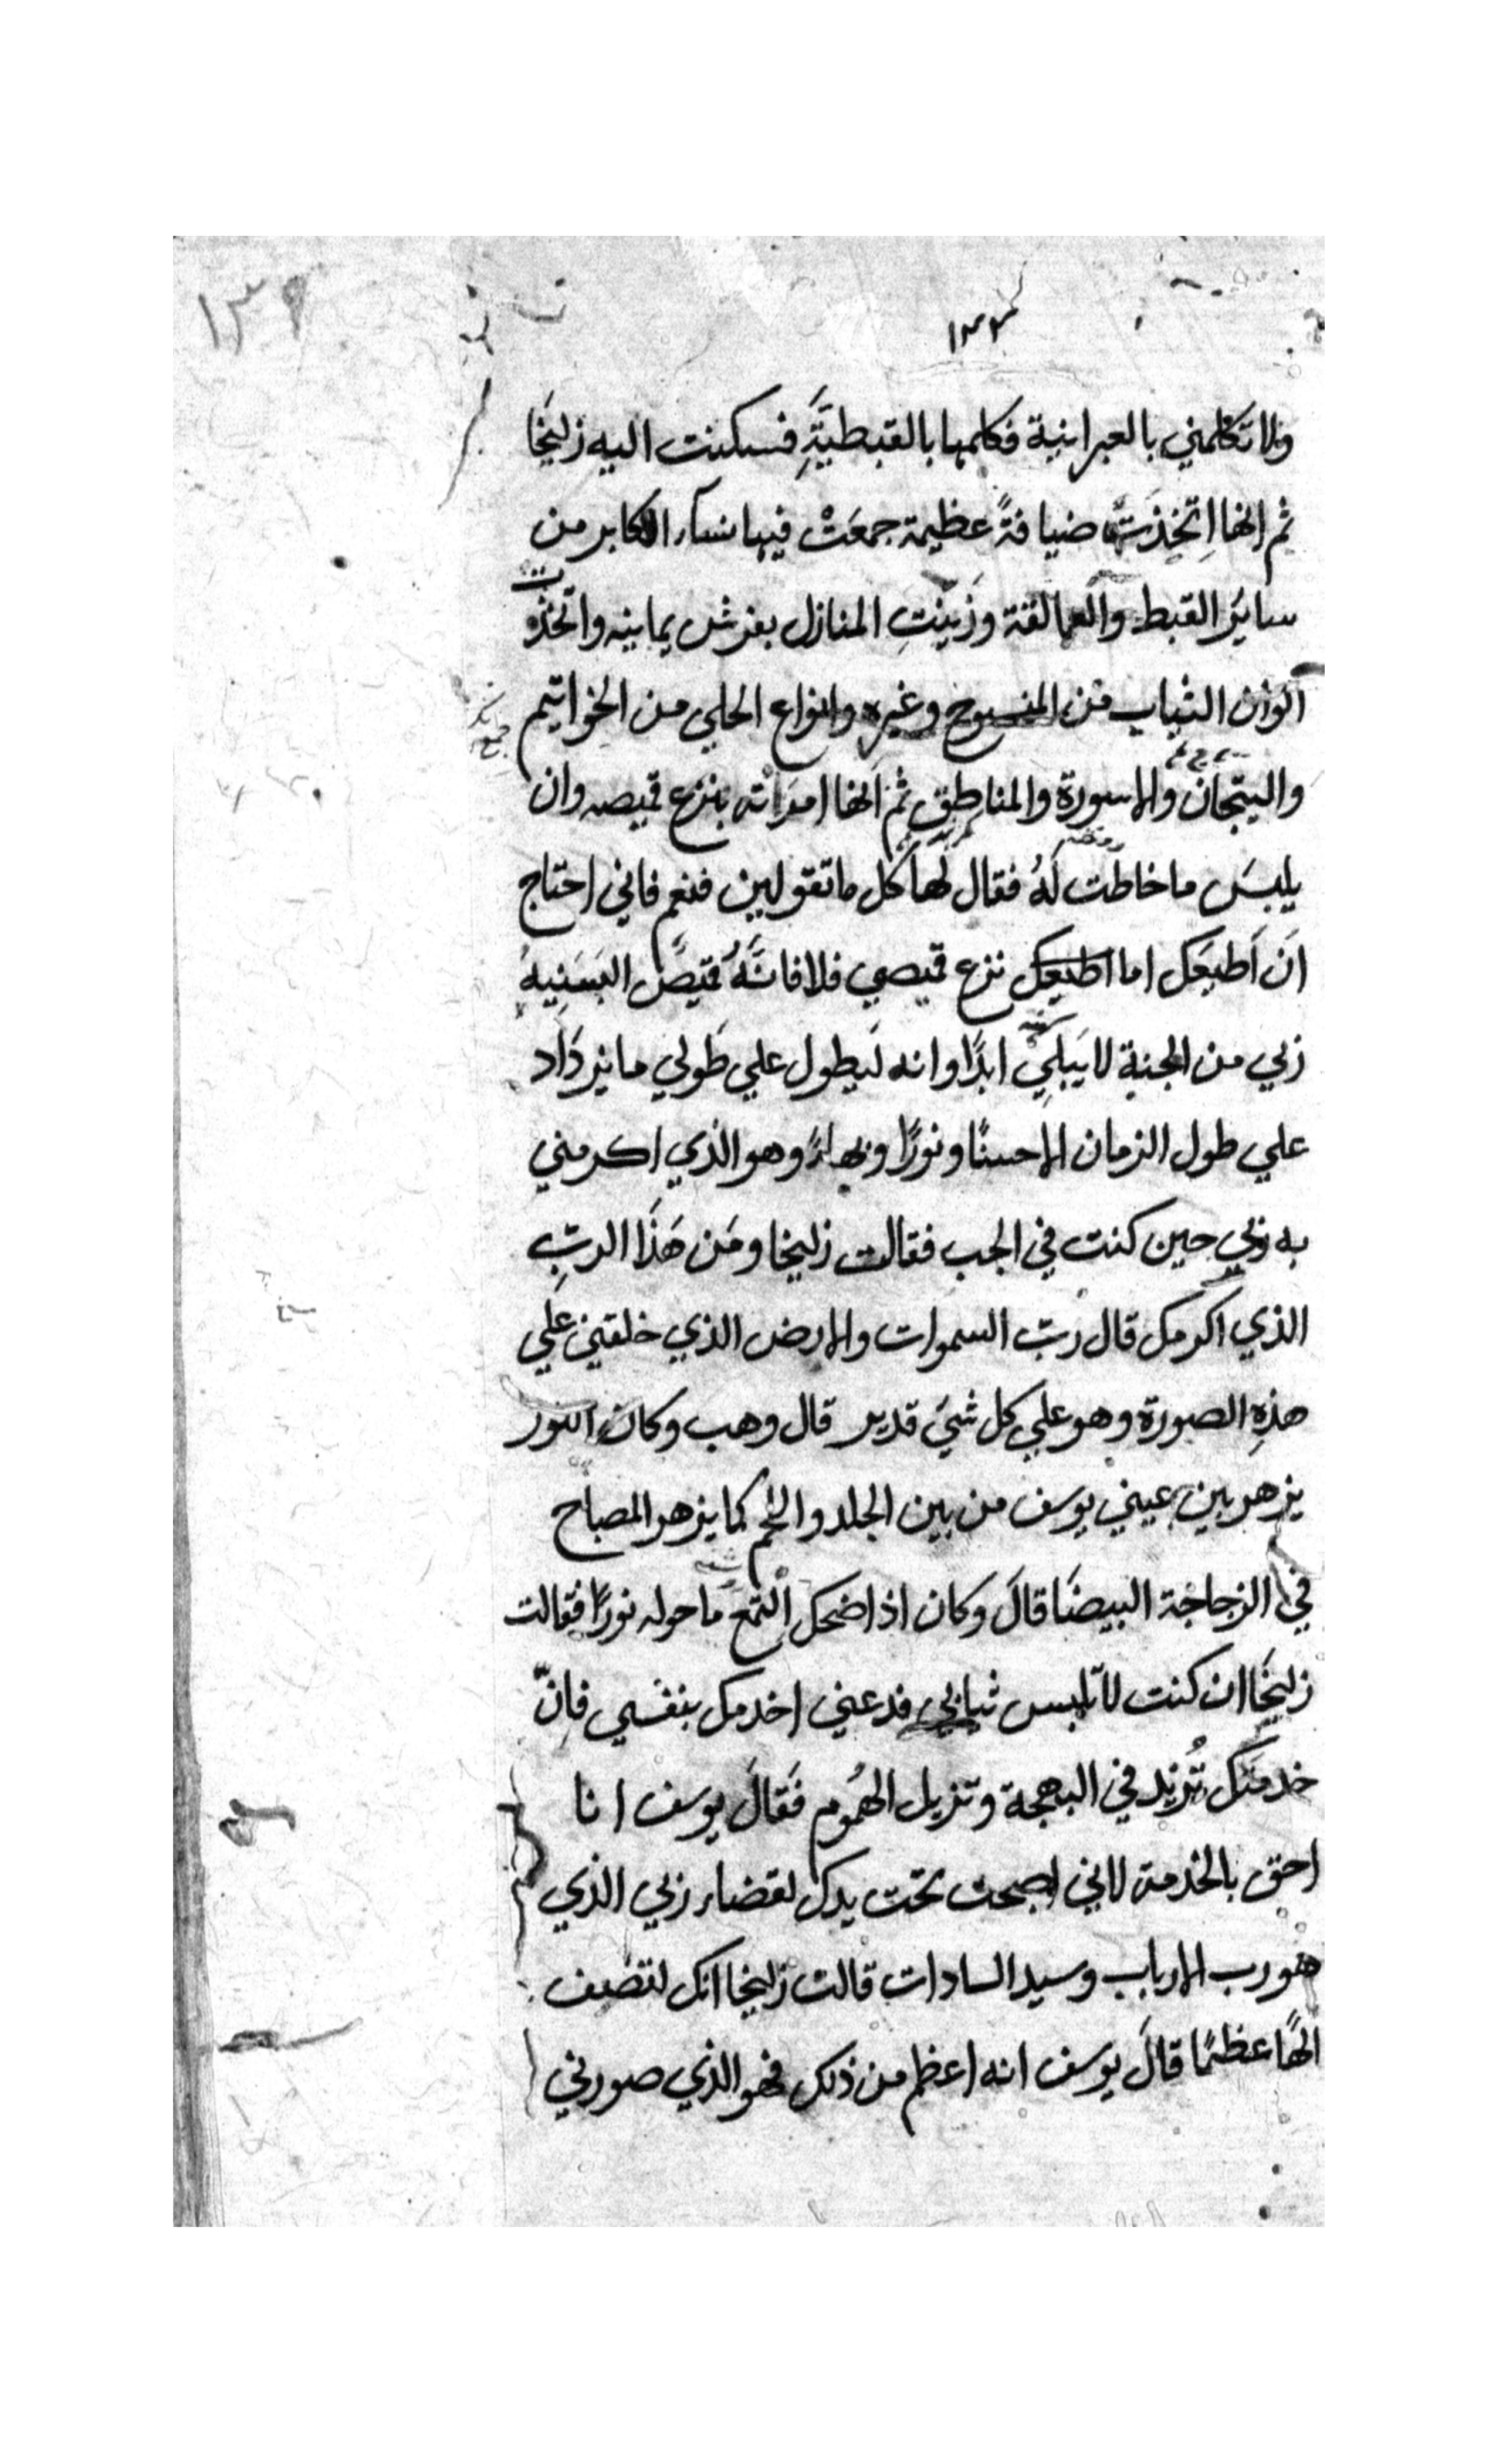 ١٣٩
١٣٣
ولا تكلمني بالعبرانية فكلمها بالقبطيَّةِ فسكنت اليه زليخَا
ثم انها اِتخذَتْ ضيافةً عظيمة جمعَتْ فيها نساء الاكابر من
سايرُ القبط والعمالقة وزَيّنتِ المنازل بفرش يمانيه واتخذت
آلوان الثياب من المنسوج وغيره وانواع الحلي من الخواتيم
والتيجان والاسورة والمناطق ثم انها امرَاته بنزع قميصه وان
يلبسَ ما خاطت لَهُ فقال لها كل ما تقولين فنعم فاني احتاج
اَن اَطيعَك اما اطيعك نزع قميصي فلا فانَّهُ قميصٌ البَسَنِيهُ
ربي من الجنة لا يَبلِي ابدًا وانه لَيطول علي طَولي ما يزدَاد
علي طول الزمان الاحسنًا ونورًا وبهاءً وهو الذي اكرمني
به ربي حين كنت في الجب فقالت زليخا ومَن هَذَا الربِّ
الذي اكرمك قال ربّ السموات والارض الذي خلقني علَي
هذِهِ الصورة وهو علي كل شيَ قدير قال وهب وكان النور
يزهر بين عيني يوسف من بين الجلد واللحم كما يزهر المصباح
في الزجاجة البيضَا قالَ وكان اذا ضحك التمع ما حوله نورًا فقالت
زليخَا ان كنت لا تلبس ثيابي فدعني اخدمك بنفسي فاِنّ
خدمتَك تُزيد في البهجة وتزيل الهُموم فَقَالَ يوسف انا
احق بالخدمة لاني اصبحت تحت يدك لقضاء ربي الذي
هو رب الارباب وسيد السادات قالت زليخا انك لتصف
الهًا عظمًا قالَ يوسف انه اعظم من ذلك فهو الذي صورني